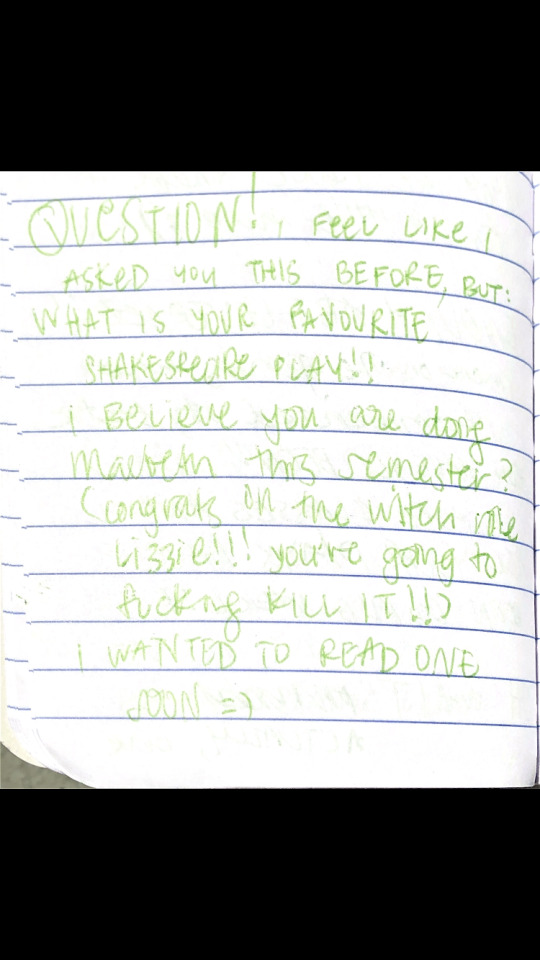 QUESTION! , FEEL LIKE I
ASKED YOU THIS BEFORE, BUT:
WHAT IS YOUR FAVOURITE
SHAKESPEARE PLAY!!
i BELIEVE you are doing
Macbeth this semester?
(congrats on the witch role
Lizzie!!! you're going to
fucking KILL IT!!)
i WANTED TO READ ONE
SOON =)